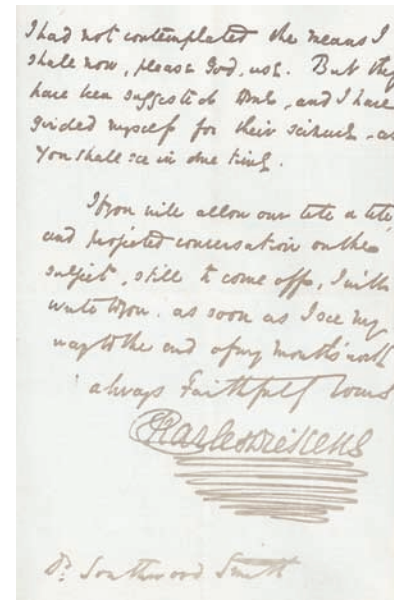 I had not contemplated the means I
shall now, please God, use. But they
have been suggested to me, and I have
girded myself for their seizure - as
you shall see in due time.
If you will allow our tête a tête
and projected conversation on the
subject, still to come off, I will
write to you as soon as I see my
way to the end of my month's work
always Faithfully Yours
Charles Dickens
Dr. Southwood Smith